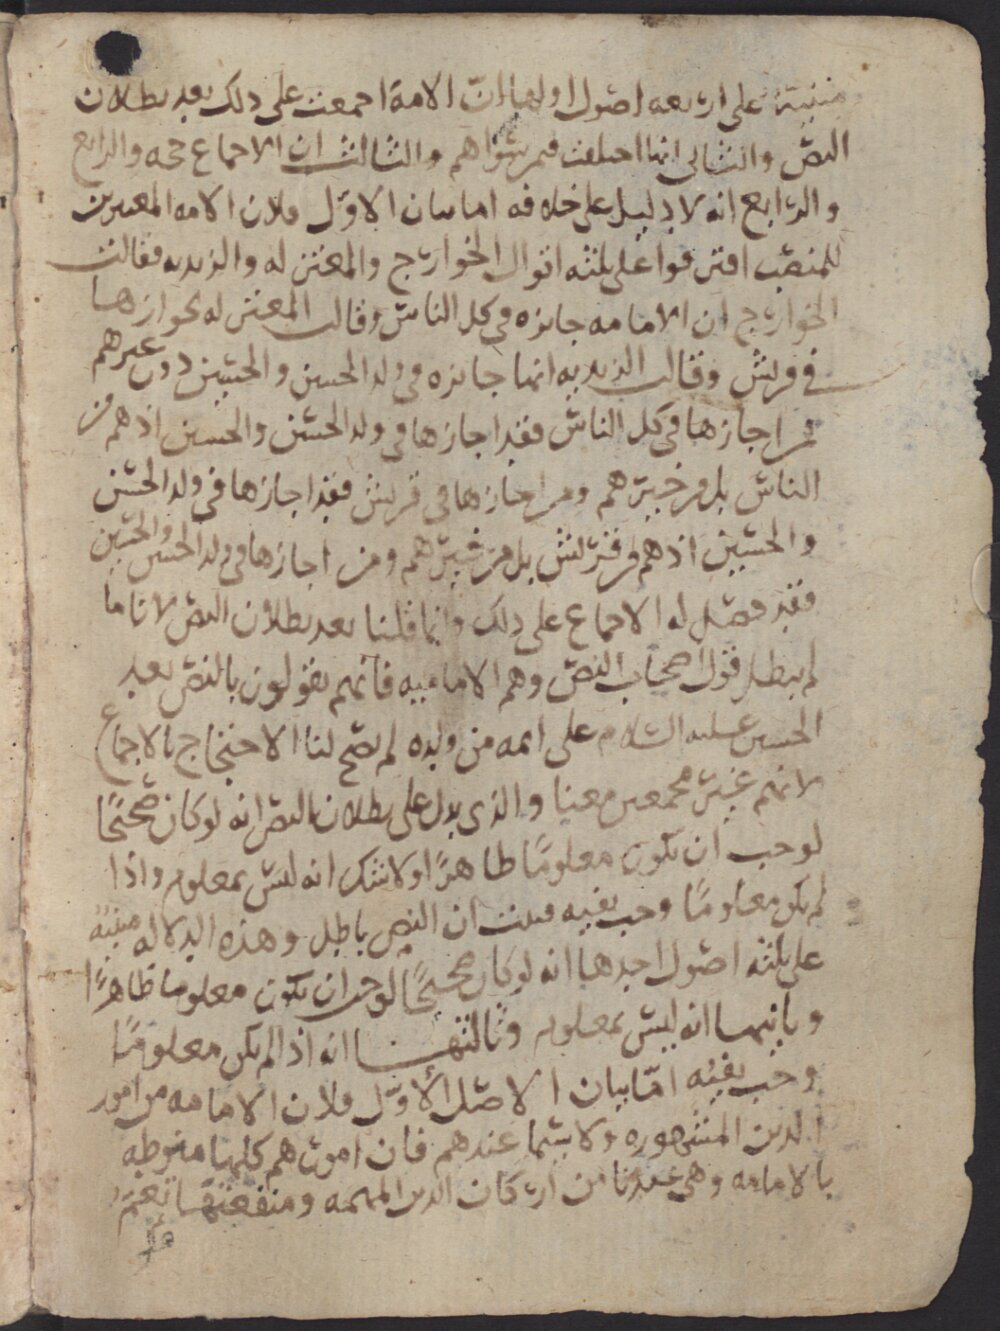 مبنية على اربعه اصول اولها ان الامة اجمعت على ذلك بعد بطلان
النص والثاني انها اختلفت فيمن سواهم والثالث ان الاجماع حجه والرابع
والرابع انه لا دليل على خلافه اما بيان الاول فلان الامه المعتبرين
للمنصب افترقوا على ثلثه اقوال الخوارج والمعتزله والزيديه فقالت
الخوارج ان الامامه جائزه في كل الناس وقالت المعتزله بجوازها
في قريش وقالت الزيديه انها جائزه في ولد الحسن والحسين دون غيرهم
فمن اجازها في كل الناس فقد اجازها في ولد الحسن والحسين اذ هم من
الناس بل من خيرهم ومن اجازها في قريش فقد اجازها في ولد الحسن
والحسين اذ هم من قريش بل من خيرهم ومن اجازها في ولد الحسن والحسين
فقد حصل له الاجماع على ذلك وانما قلنا بعد بطلان النص لانا ما
لم يبطل قول اصحاب النص وهم الاماميه فانهم يقولون بالنص بعد
الحسين عليه السلام على ائمه من ولده لم يصح لنا الاحتجاج بالاجماع
لانهم غير مجمعين معنا والذي يدل على بطلان النص انه لو كان صحيحًا
لوجب ان تكون معلومًا ظاهرًا ولا شك انه ليس بمعلوم واذا
لم يكن معلومًا وجب نفيه فثبت ان النص باطل وهذه الدلاله مبنية
على ثلثه اصول احدها انه لو كان صحيحًا لوجب ان يكون معلوما ظاهرًا
وثانيها انه ليس بمعلوم وثالثها انه اذا لم يكن معلومًا
وجب نفيه امّا بيان الاصل الأول فلان الامامه من امور
الدين المشهوره ولا سيما عندهم فان امورهم كلها منوطه
بالامامه وهي عندنا من اركان الدين المهمه ومنفعتها تعم